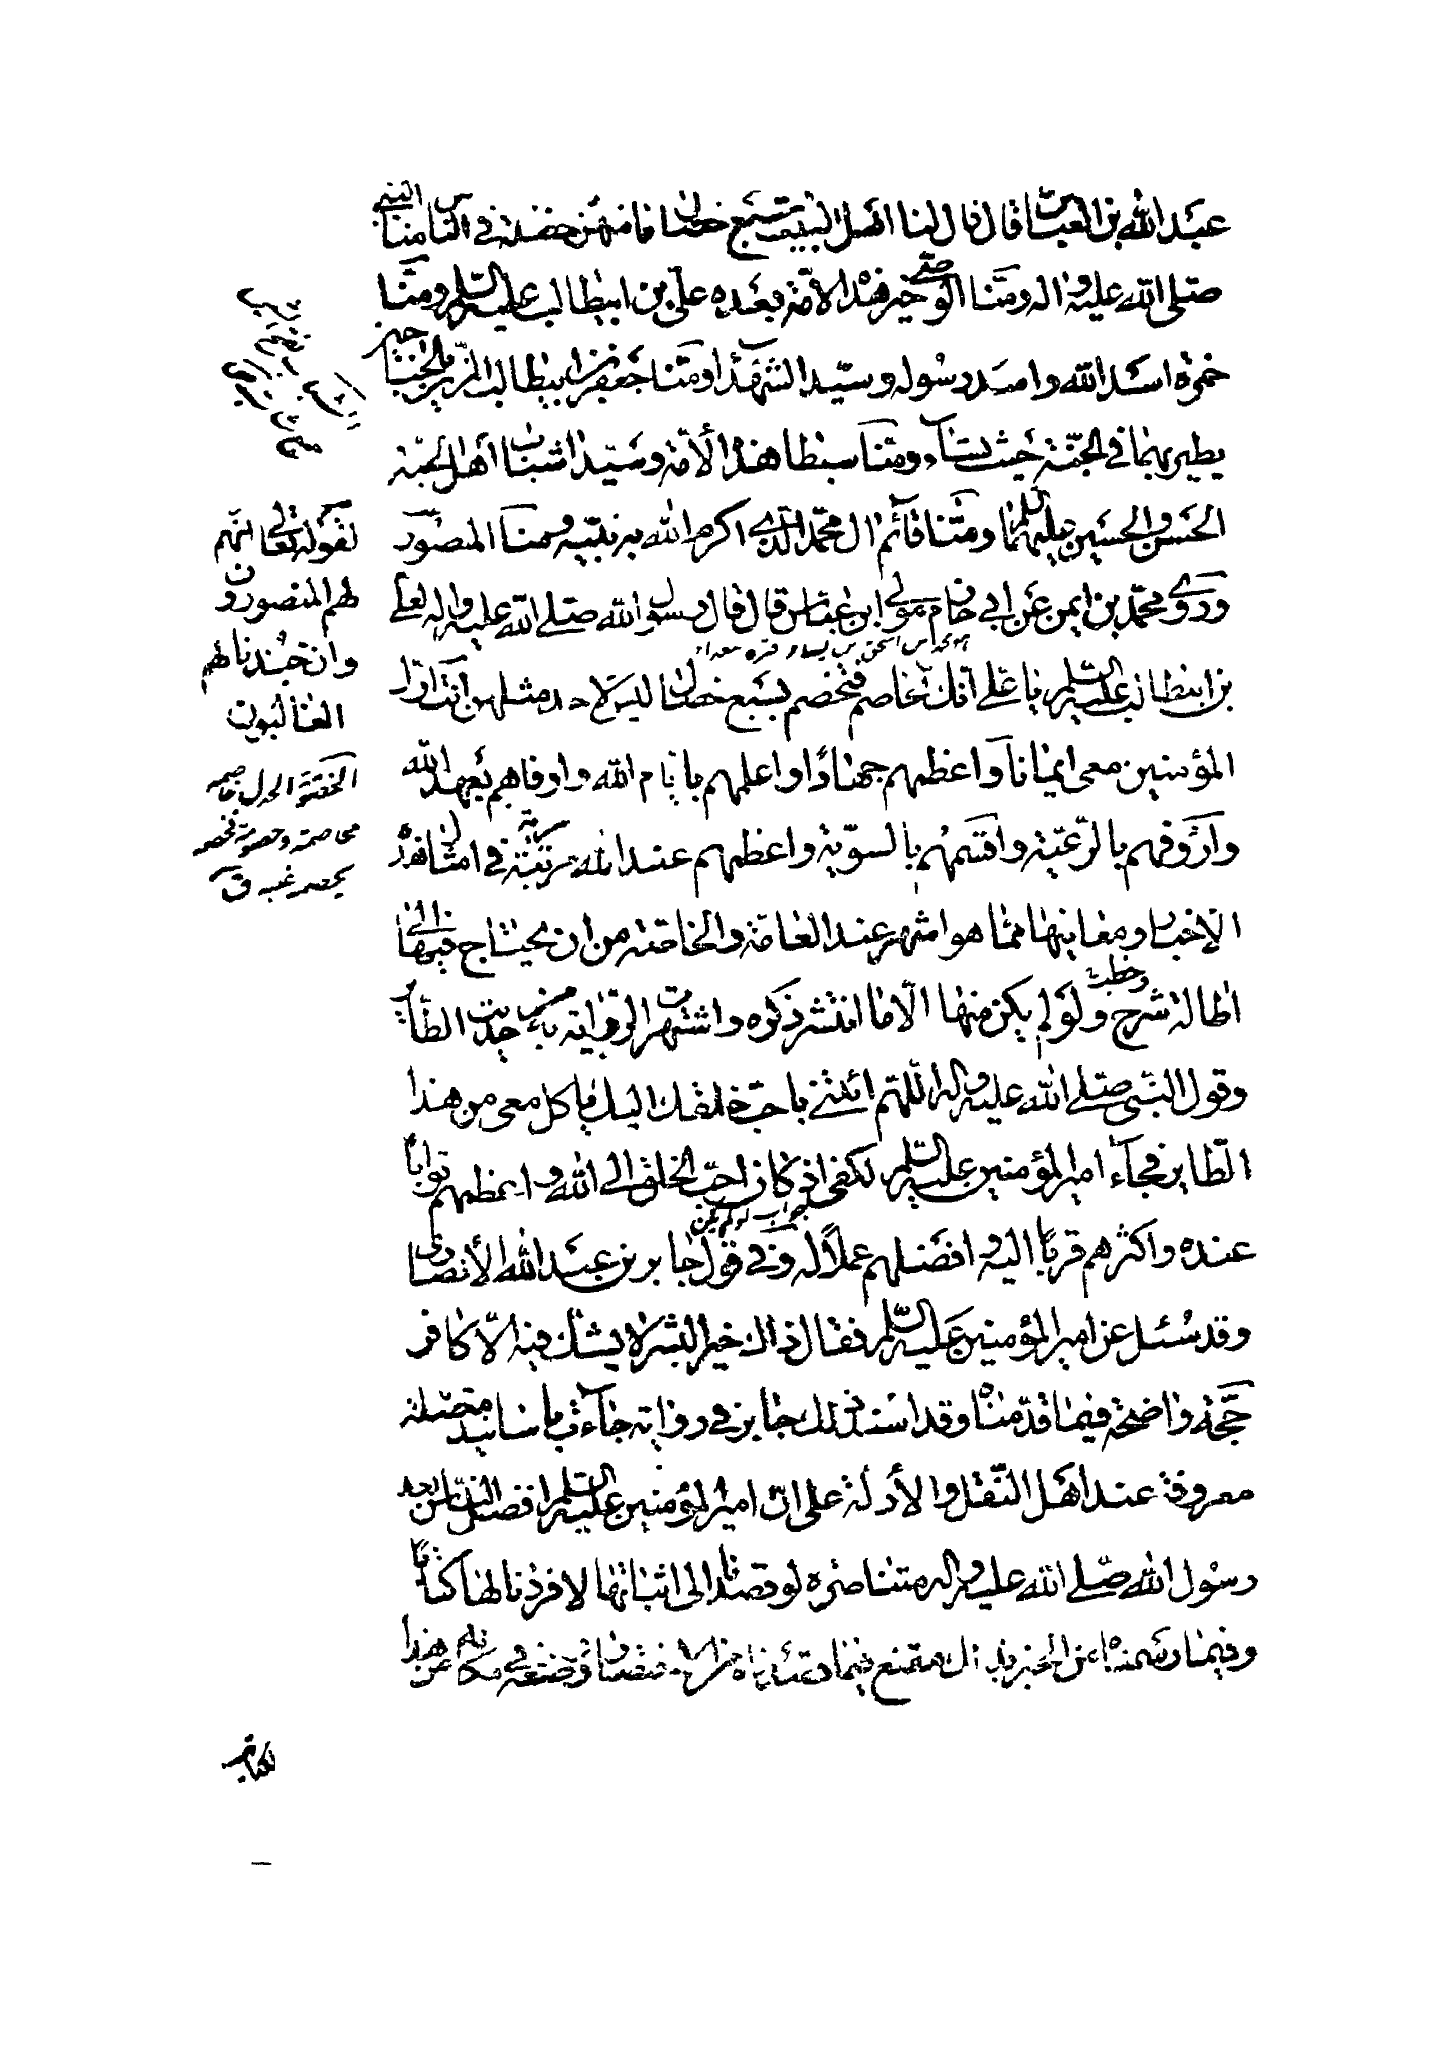 عبد الله بن العباس قال قال لنا اهل البيت سبع خصال ما منهن خصلة في الناس منا النبي
صلى الله عليه واله ومنا الوصي خير هذه الامة بعده علي بن ابيطالب عليه السلم ومنا
حمزة اسد الله واسد رسوله وسيد الشهداء ومنا جعفر بن ابيطالب المزين بالجناحين
يطير بهما في الجنة حيث يشاء ومنا سبطا هذه الأمة وسيدا شباب أهل الجنة
الحسن والحسين عليهما السلم ومنا قائم ال محمد الذي اكرم الله به نبيه ومنا المنصور
وروى محمد بن ايمن عن ابي حازم مولى ابن عباس قال قال رسول الله صلى الله عليه واله لعلي
بن ابيطالب عليه السلم يا علي انك تخاصم فتخصم بسبع خصال ليس لاحد مثلهن انت اول
المؤمنين معي ايمانا واعظمهم جهادا واعلمهم بايام الله واوفاهم بعهد الله
وارؤفهم بالرعية واقسمهم بالسوية واعظمهم عند الله مزية في امثال هذه
الاخبار ومعانيها مما هو اشهر عند العامة والخاصة من ان يحتاج فيها الى
اطالة شرح وخطب ولو لم يكن منها الا ما انتشر ذكره واشتهرت الرواية به من حديث الطائر
وقول النبي صلى الله عليه واله اللهم ائتني باحب خلقك اليك ياكل معي من هذا
الطاير فجاء امير المؤمنين عليه السلم لكفى اذ كان احب الخلق الى الله واعظمهم ثوابا
جواب لو لم يكن
عنده واكثرهم قربا اليه وافضلهم عملا له وفي قول جابر بن عبد الله الأنصاري
وقد سئل عن امير المؤمنين عليه السلم فقال ذاك خير البشر لا يشك فيه الا كافر
حجة واضحة فيما قدمناه وقد اسند ذلك جابر في رواية جاءت باسانيد متصلة
معروفة عند اهل النقل والأدلة على ان امير المؤمنين عليه السلم افضل الناس بعد
رسول الله صلى الله عليه واله متناصرة لو قصدنا الى اثباتها لافردنا لها كتابا
وفيما رسمناه عن الخبر بذلك مقنع فيما قصدناه من الاختصار ووضعه في مكانه من هذا
لقوله تعالى انهم
لهم المنصورون
وان جندنا لهم
الغالبون
الكتاب